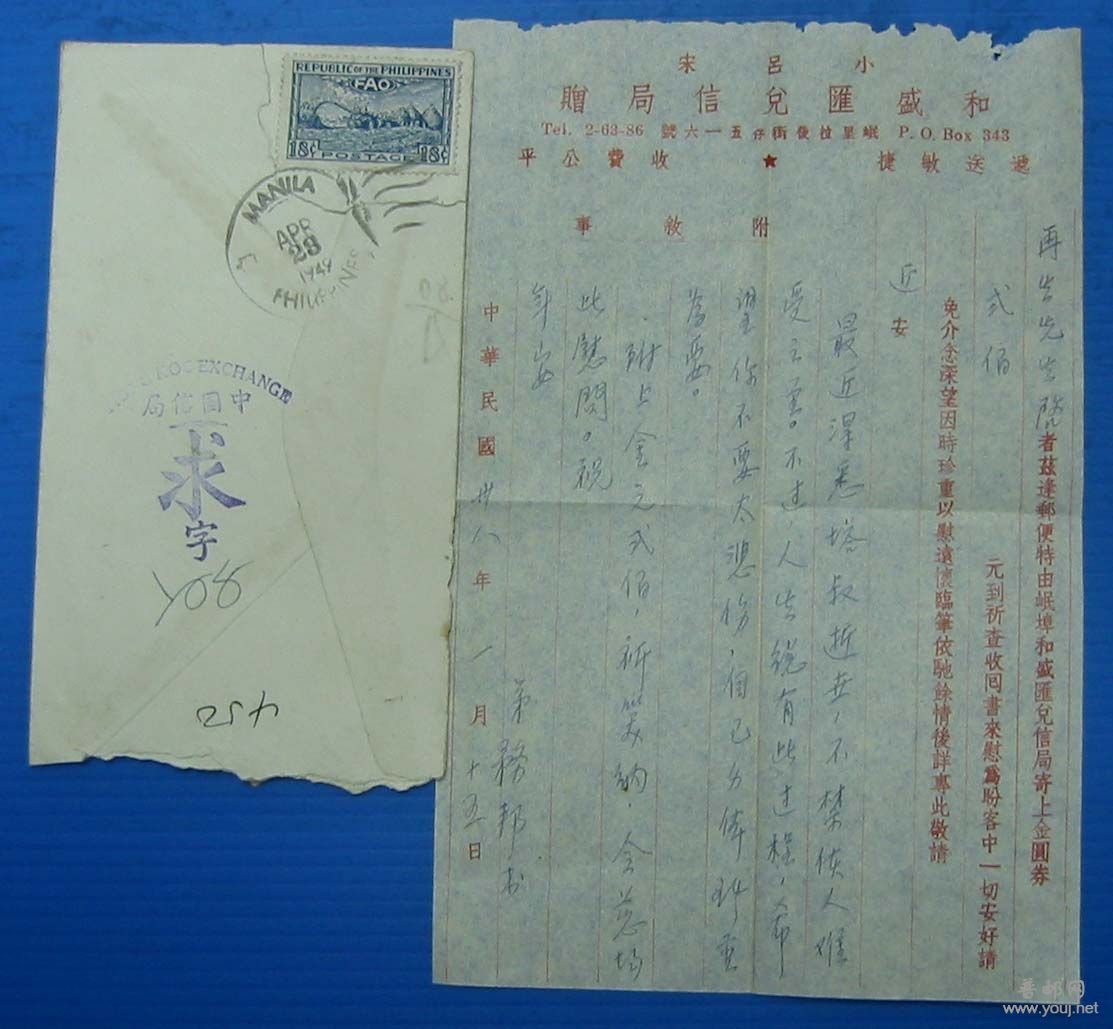 REPUBLIC OF THE PHILIPPINES
FAO
18¢ POSTAGE 18¢
MANILA
APR
28
1949
PHILIPPINES
KOC EXCHANGE
局信國中
求
字
宋呂小
贈局信兌匯盛和
Tel. 2-63-86 號六一五仔街後拉里岷 P. O. Box 343
平公費收 ★ 捷敏送遞
事敘附
再生先生啓者茲逢郵便特由岷埠和盛匯兌信局寄上金圓券
弍佰
元到祈查收回書來慰為盼客中一切安好請
免介念深望因時珍重以慰遠懷臨筆依馳餘情後詳專此敬請
近安
最近淂悉塔叔逝世,不禁使人难
受之至。不过,人生總有此过程,希
望你不要太悲伤,自己身体
為要。
附上金元弍佰,祈笑納,
此慰問。祝
年安
弟務邦书
中華民國卅八年一月十五日
普邮网
www.youj.net